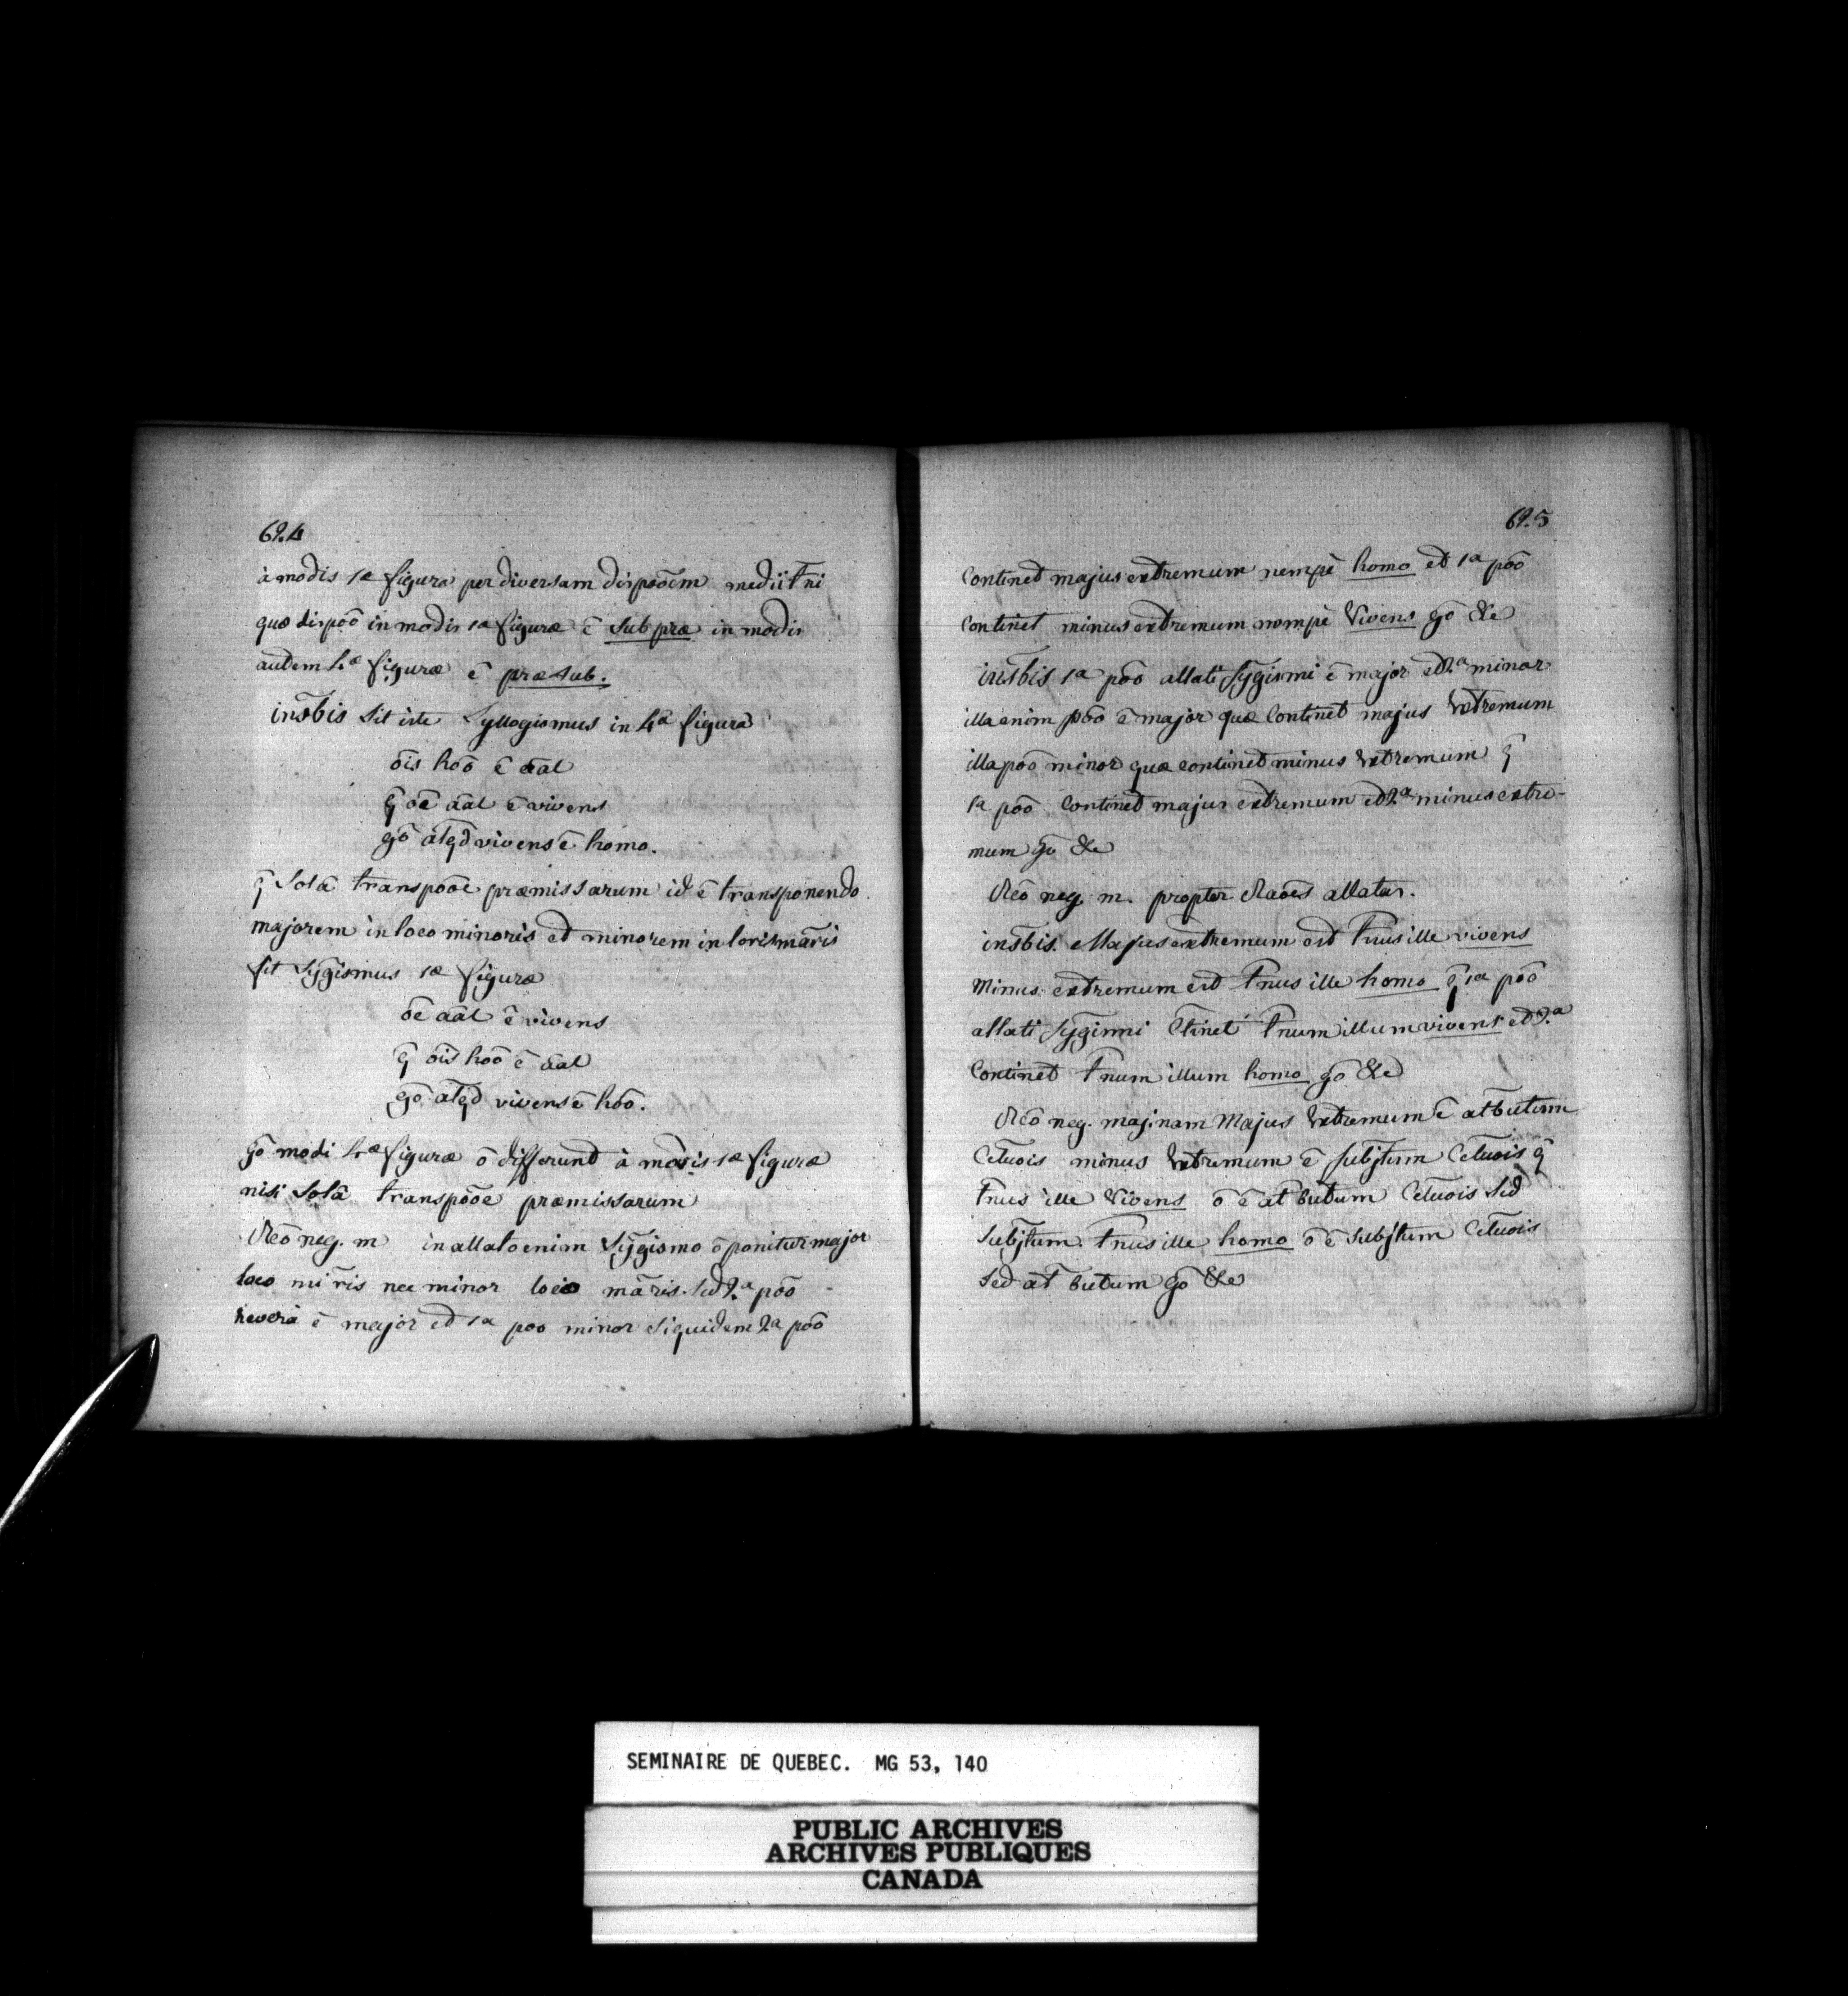 69.4
à modis 1æ figuræ per diversam dispoõem medii t̄ni
quæ dispoõ in modis 1æ figuræ ē sub præ in modis
autem 4æ figuræ ē præ sub.
inst̄bis sit iste Syllogismus in 4ā figurā
ōis hōō ē āal
q̄ ōē āal ē vivens
gō ālqd vivens ē homo.
q̄ solâ transpoōe præmissarum id ē transponendo
majorem in loco minoris et minorem in loco māris
fit syḡismus 1æ figuræ
ōē āal ē vivens
q̄ ōis hōō ē āal
gō ālqd vivens ē hōō.
gō modi 4æ figuræ ō differunt à modis 1æ figuræ
nisi solâ transpoōe præmissarum
Rēō neg. m in allato enim syḡismo ō ponitur major
loco mīris nec minor loco māris. sed 2.a poō
reverà ē major et 1a poo minor siquidem 2a poō
69.5
Continet majus extremum nempè homo et 1a poō
Continet minus extremum nempè Vivens gō &c
inst̄bis 1a poō allati syḡismi ē major et 2.a minor
illa enim poō ē major quæ Continet majus extremum
illa poō minor quæ continet minus extremum q̄
1a poō Continet majus extremum et 2.a minus extre-
mum gō &c
Rēō neg. m. propter Raōēs allatas.
inst̄bis. Majus extremum est t̄nus ille vivens
Minus extremum est t̄nus ille homo q̄ 1a poō
allati syḡismi C̄tinet t̄num illum vivens et 2.a
Continet t̄num illum homo gō &c
Rēō neg. maj. nam Majus extremum ē at̄butum
Cc̄luōis minus extremum ē subj̄tum Cc̄luōis q̄
t̄nus ille Vivens ō ē at̄butum Cc̄luōis sed
subj̄tum. t̄nus ille homo ō ē subj̄tum Cc̄luōis
sed at̄butum gō &c
SEMINAIRE DE QUEBEC. MG 53, 140
PUBLIC ARCHIVES
ARCHIVES PUBLIQUES
CANADA